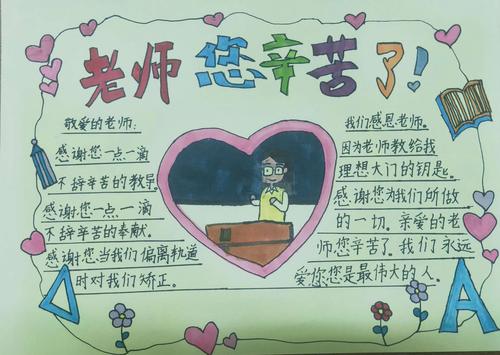 老师您辛苦了!
敬爱的老师:
感谢您一点一滴
不辞辛苦的教导。
感谢您一点一滴
不辞辛苦的奉献。
感谢您当我们偏离轨道
时对我们矫正。
我们感恩老师。
因为老师教给我
理想大门的钥匙。
感谢您为我们所做
的一切。亲爱的老
师您辛苦了。我们永远
爱你您是最伟大的人。
A